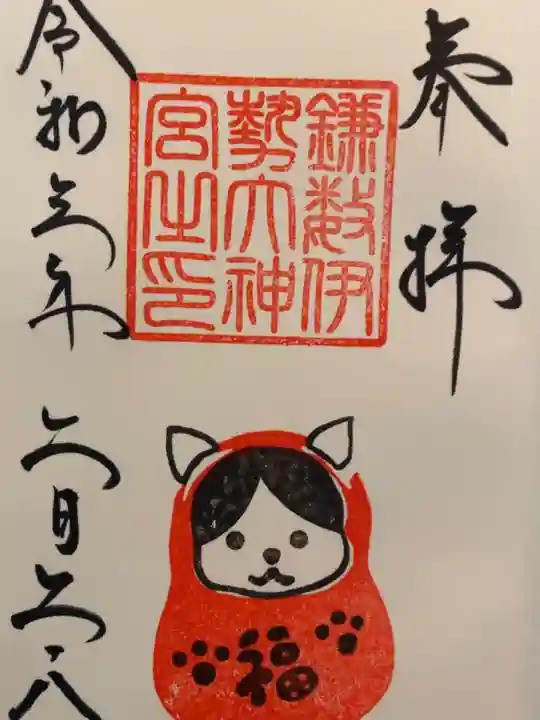 奉拝
鎌数伊
勢大神
宮之印
令和三年 月
福